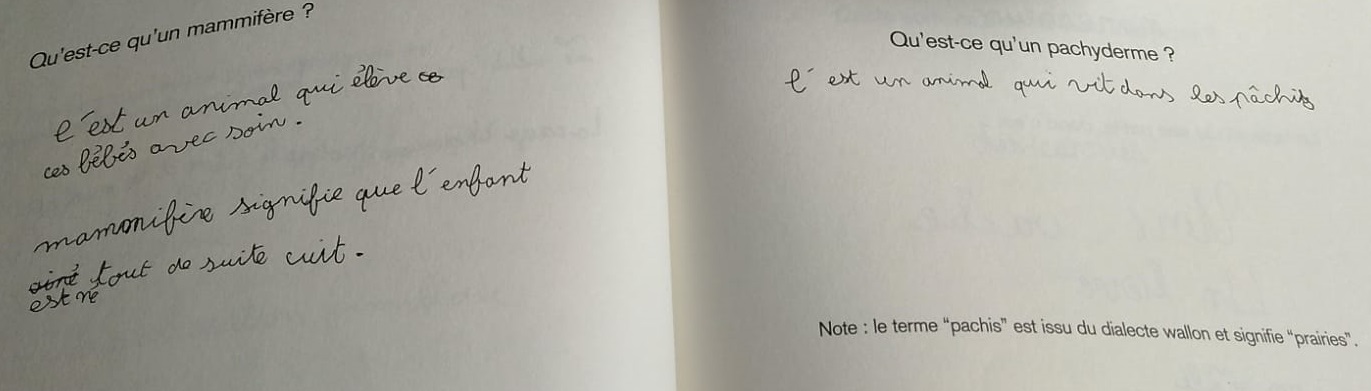 Qu'est-ce qu'un mammifère ?
C'est un animal qui élève ce
ces bébés avec soin.
mamonifère signifie que l'enfant
est né tout de suite cuit.
Qu'est-ce qu'un pachyderme ?
C'est un animal qui vit dans les pâchis
Note : le terme “pachis” est issu du dialecte wallon et signifie “prairies”.